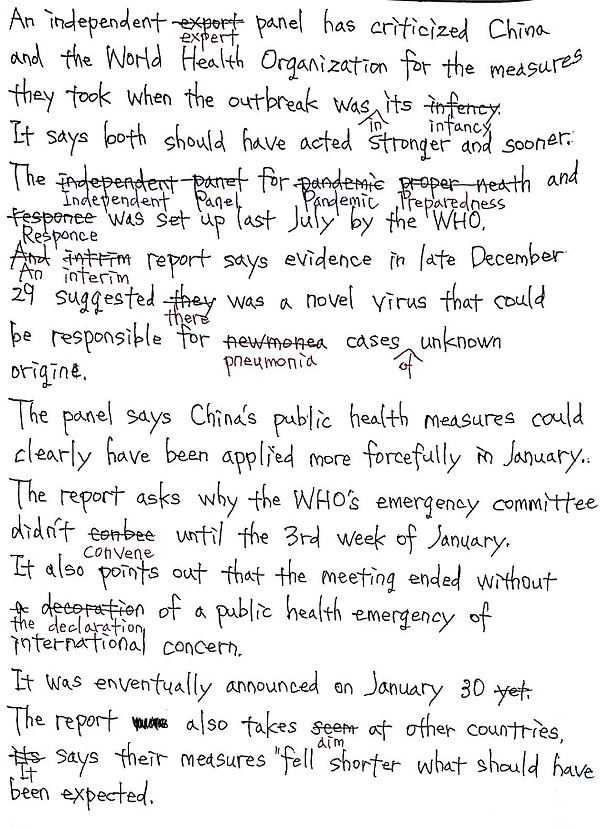 An independent export panel has criticized China
expert
and the World Health Organization for the measures
they took when the outbreak was its infency.
in infancy
It says both should have acted stronger and sooner.
The independent panel for pandemic proper neath and
Independent Panel Pandemic Preparedness
responce was set up last July by the WHO.
Responce
And intrim report says evidence in late December
An interim
29 suggested they was a novel virus that could
there
be responsible for newmonea cases unknown
pneumonia of
origine.
The panel says China's public health measures could
clearly have been applied more forcefully in January..
The report asks why the WHO's emergency committee
didn't conbee until the 3rd week of January.
convene
It also points out that the meeting ended without
a decoration of a public health emergency of
the declaration
international concern.
It was enventually announced on January 30 yet.
The report also takes seem at other countries,
aim
Its says their measures "fell shorter what should have
It
been expected.